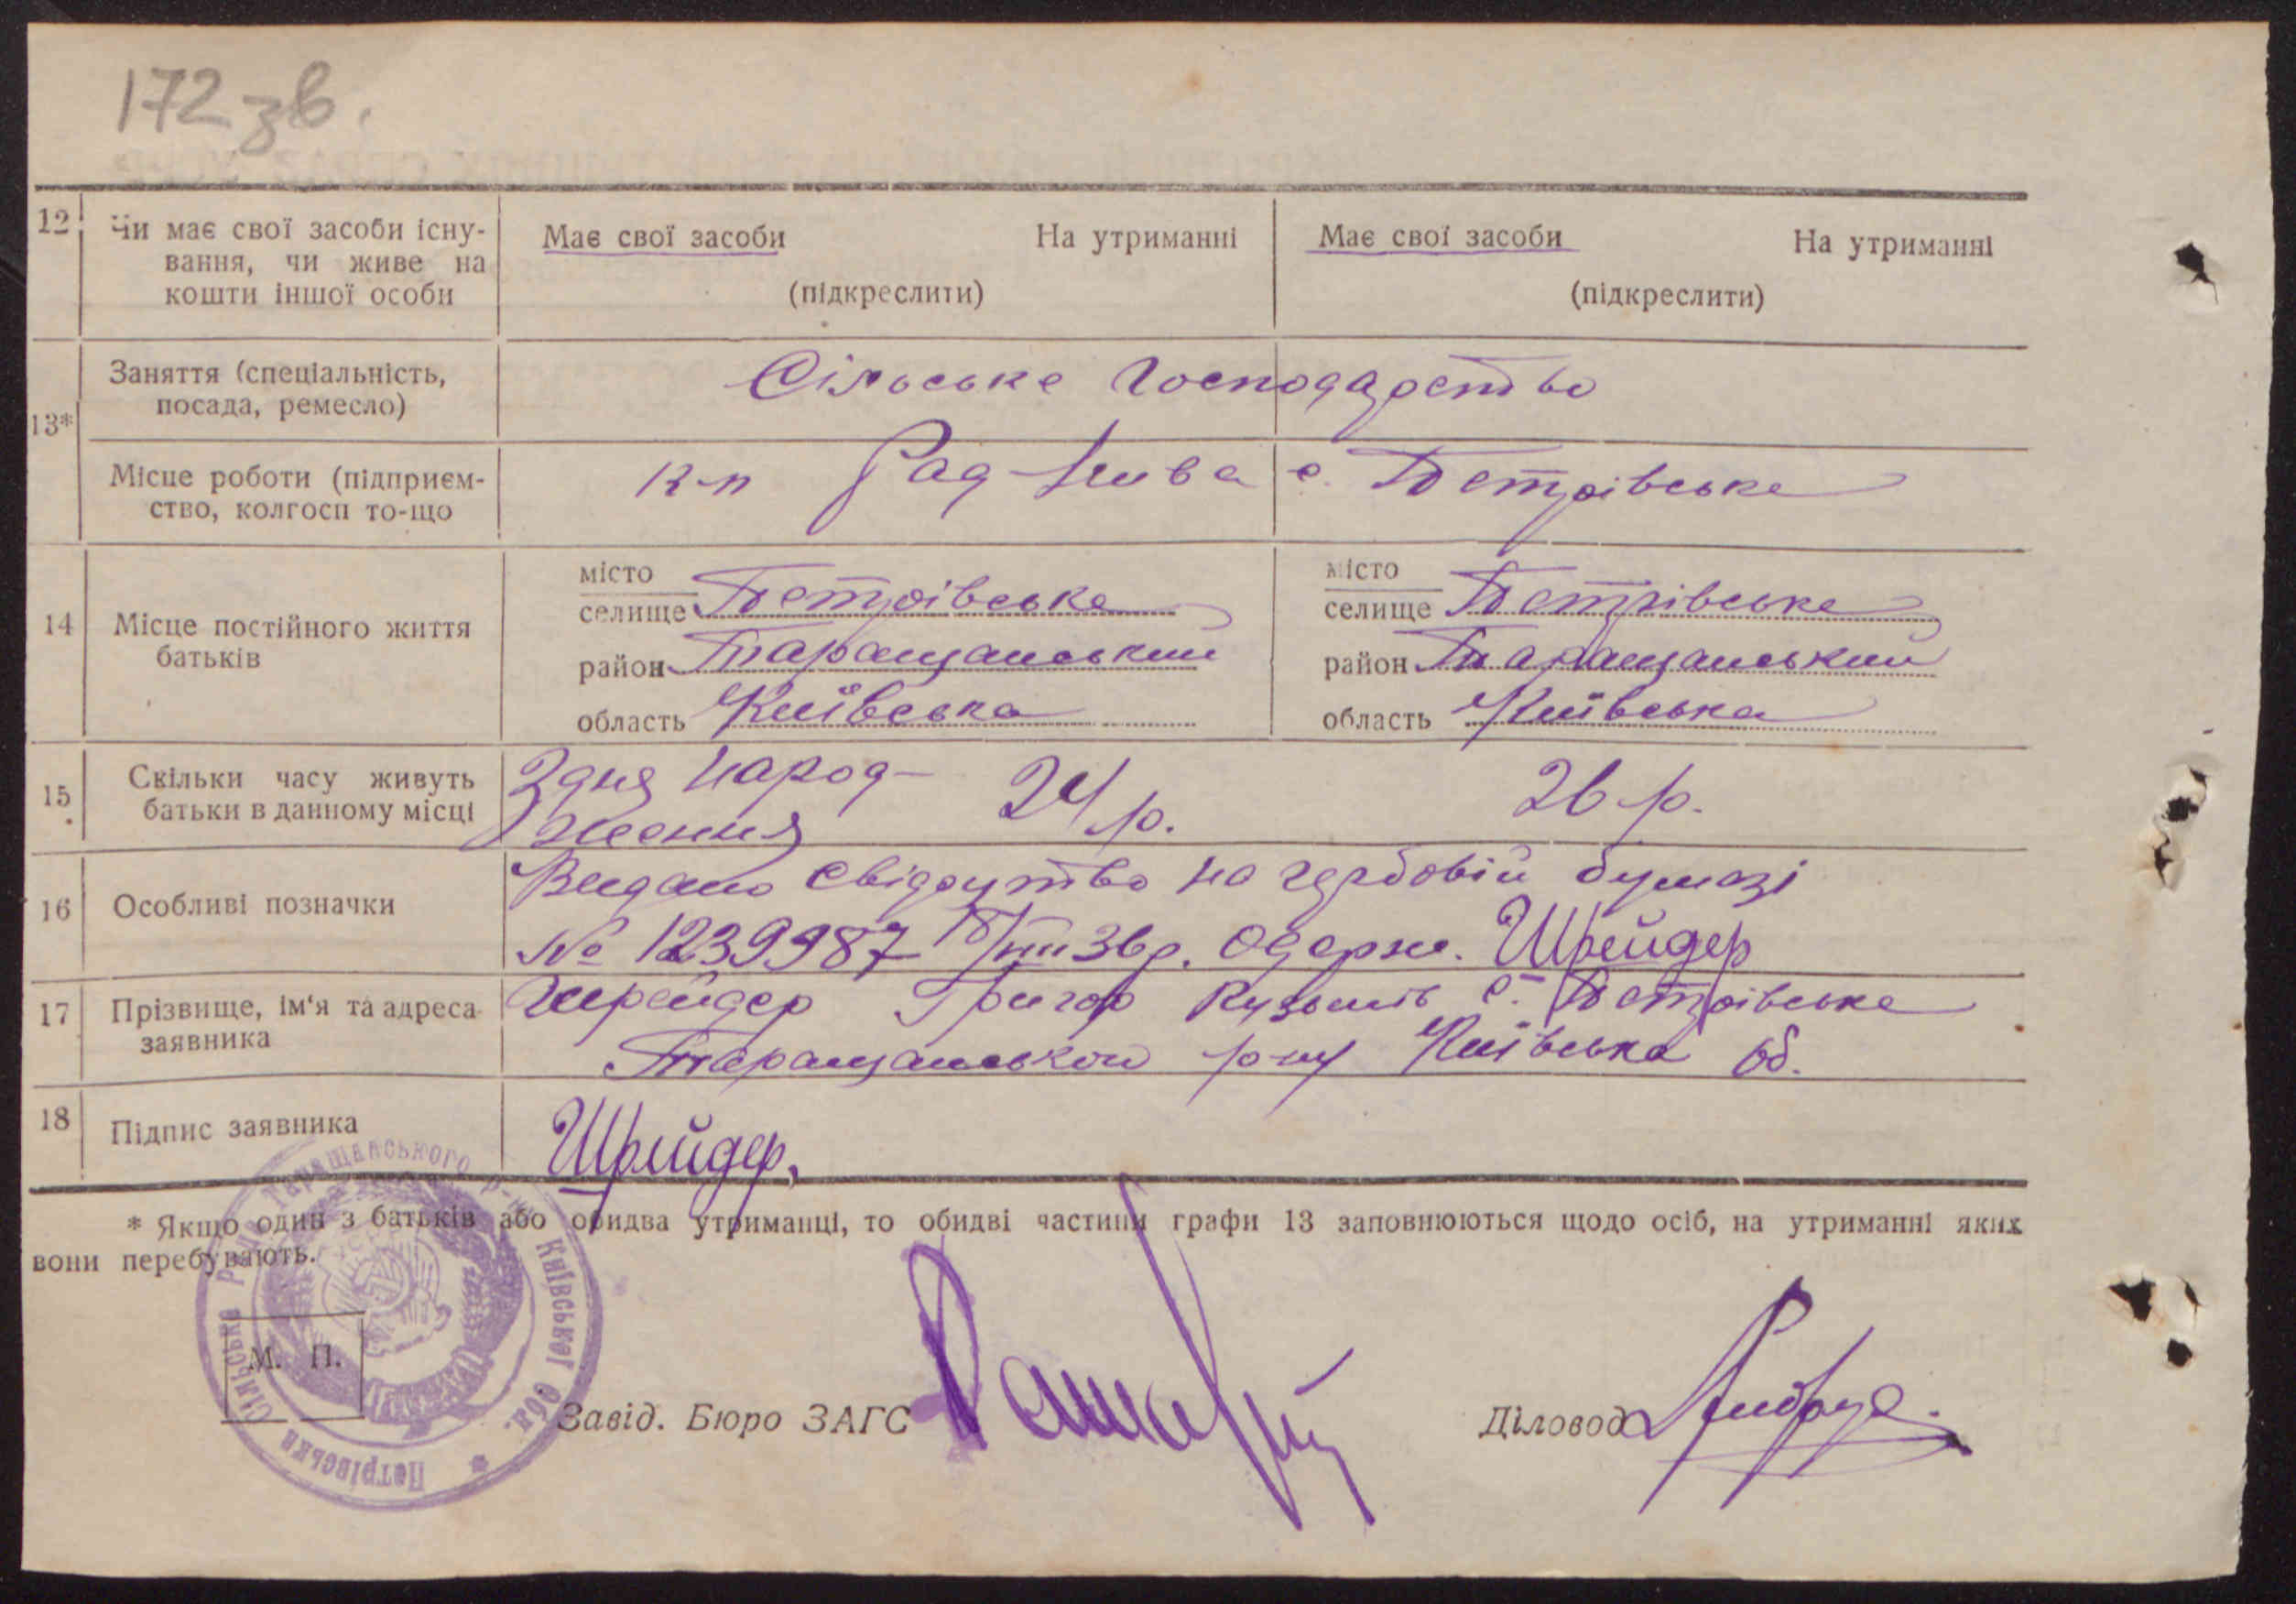 172 зв.
12 Чи має свої засоби існу-
вання, чи живе на
кошти іншої особи
Має свої засоби На утриманні
(підкреслити)
Має свої засоби На утриманні
(підкреслити)
13*
Заняття (спеціальність,
посада, ремесло)
Сільське господарство
Місце роботи (підприєм-
ство, колгосп то-що
к-п Рад-Нива с. Петрівське
14 Місце постійного життя
батьків
місто
селище Петрівське
район Таращанський
область Київська
місто
селище Петрівське
район Таращанський
область Київська
15 Скільки часу живуть
батьки в данному місці
З дня народ-
ження 24 р. 26 р.
16 Особливі позначки
Видано свідоцтво на гербовій бумазі
№ 1239987 36 р. Одерж. Шрейдер
17 Прізвище, ім'я та адреса
заявника
Шрейдер Григор Кузьмів с. Петрівське
Таращанськой р-ну Київська об.
18 Підпис заявника
Шрейдер,
* Якщо один з батьків або обидва утриманці, то обидві частини графи 13 заповнюються щодо осіб, на утриманні яких
вони перебувають.
Петрівська сільська рада Таращанського р-ну Київської обл.
М. П.
Завід. Бюро ЗАГС
Діловод